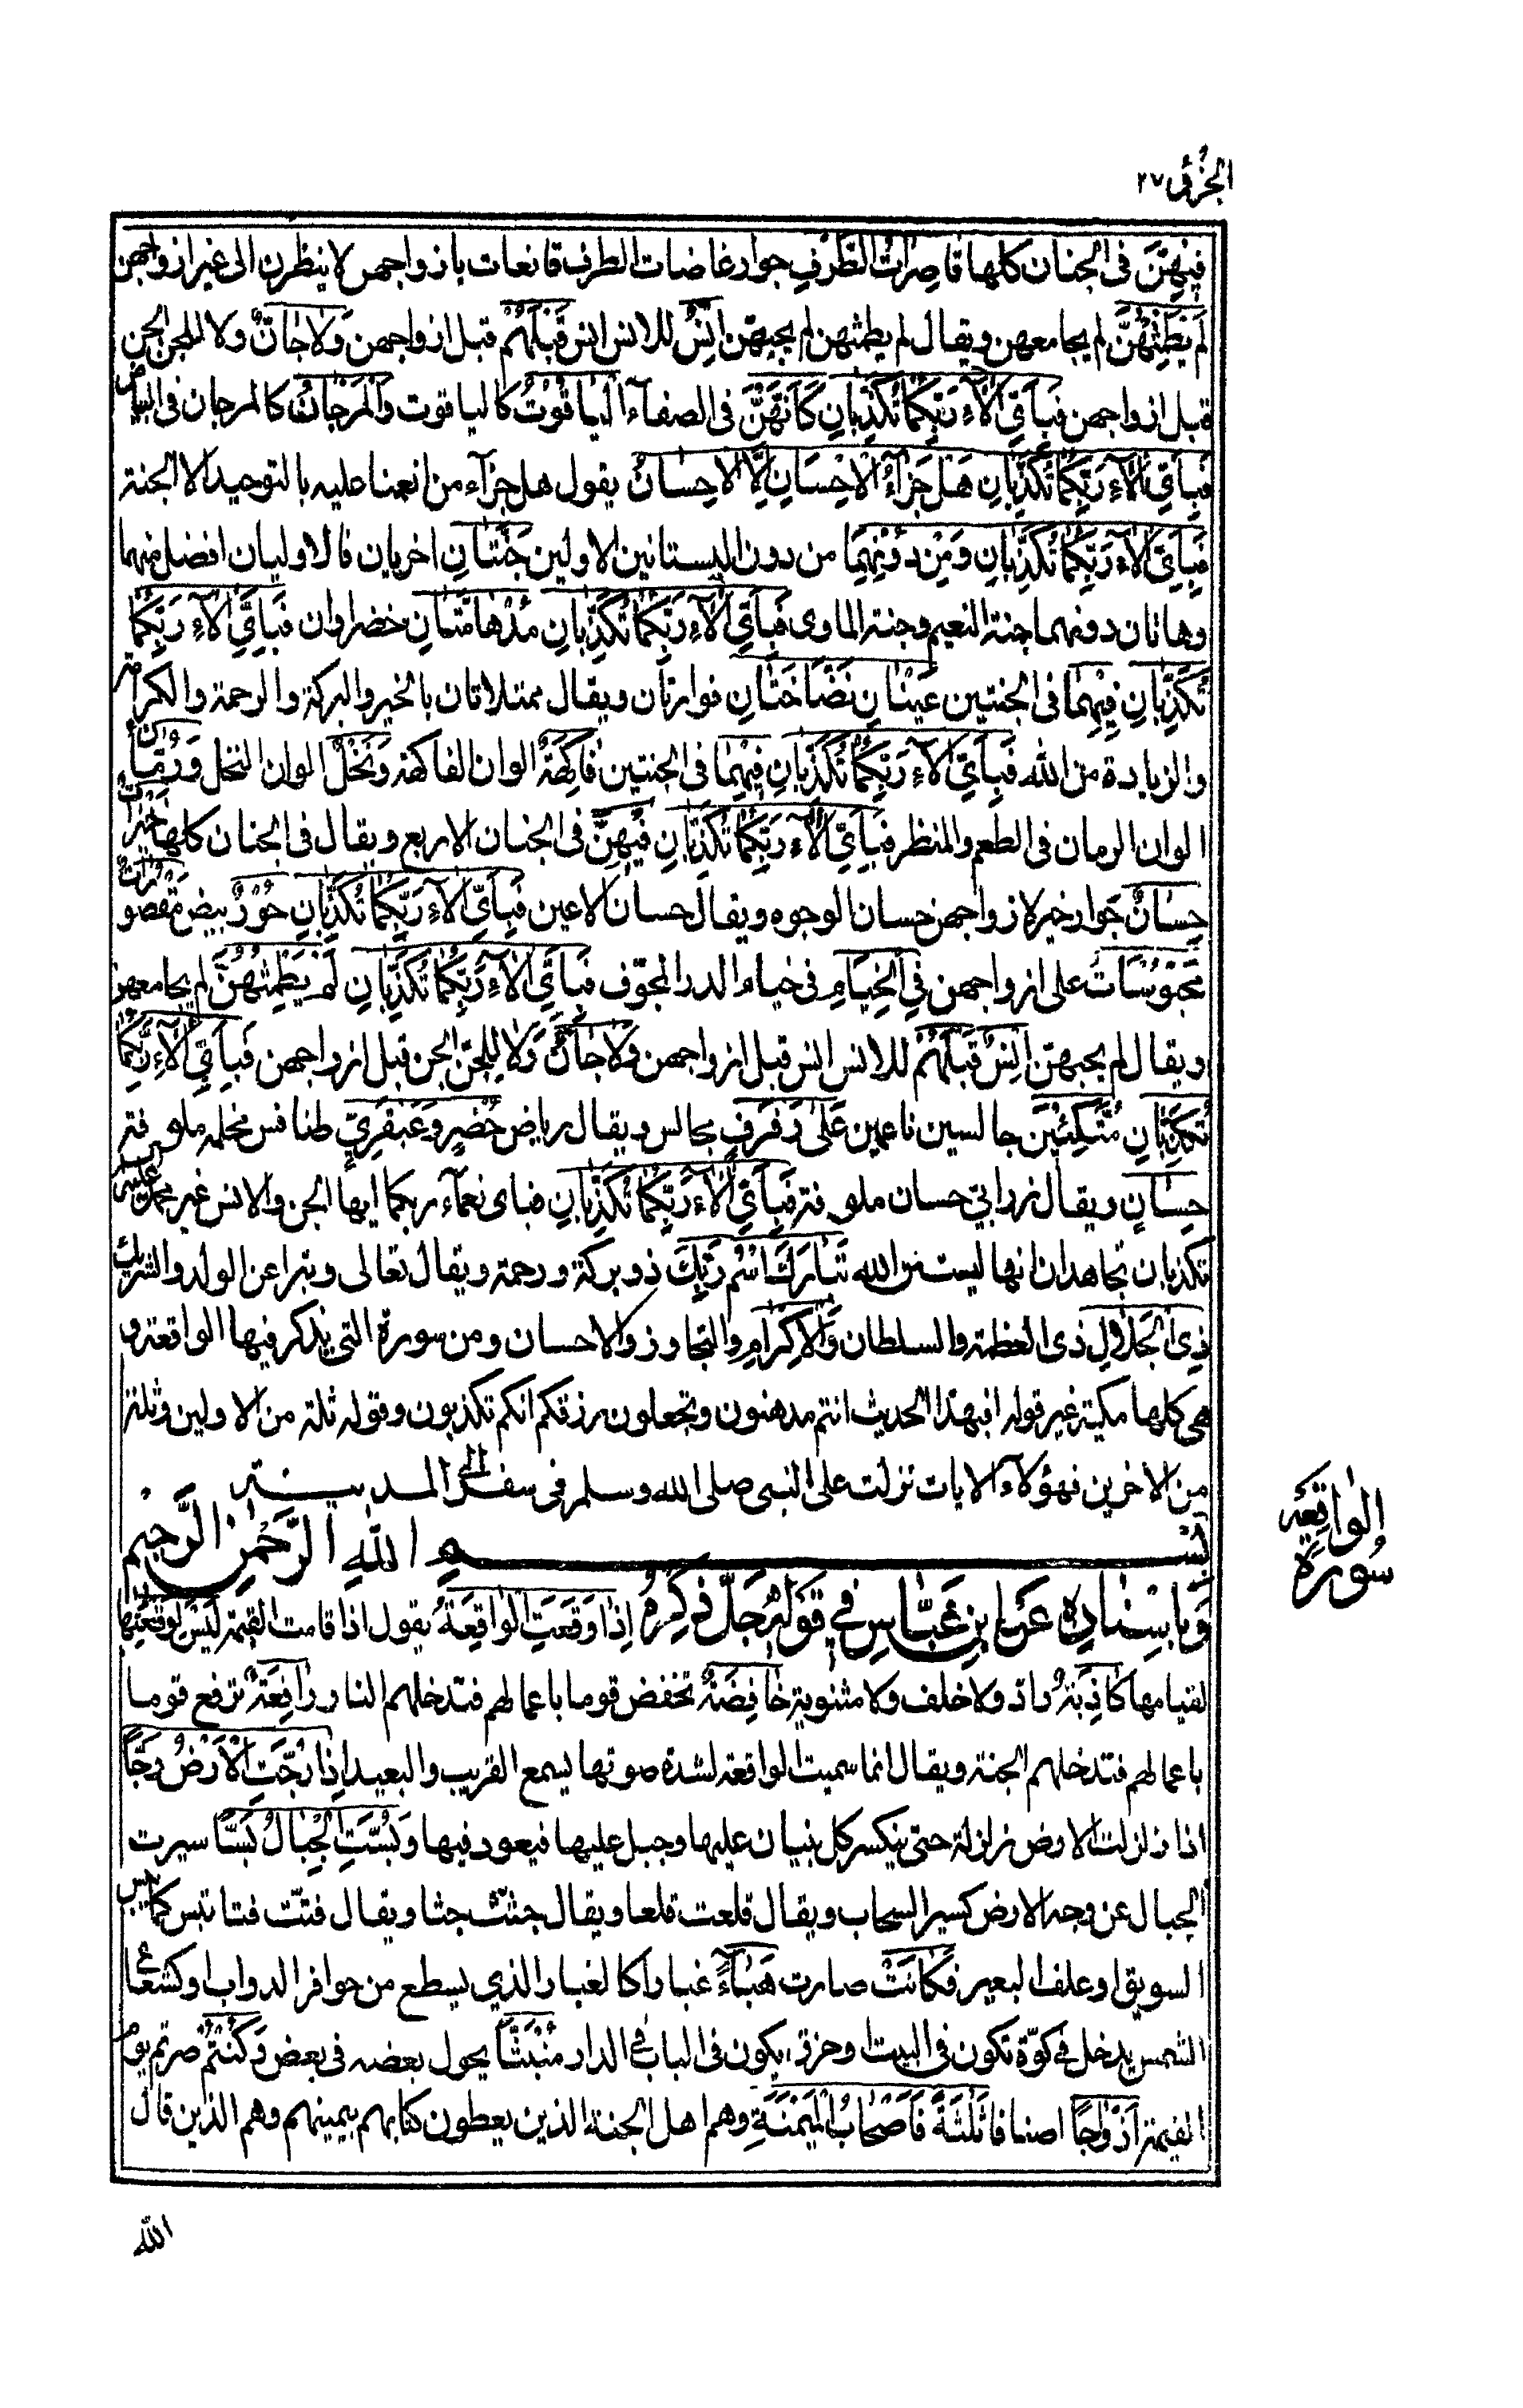 الجزؤ ٢٧
فِيْهِنَّ فى الجنان كلها قَاصِرَاتُ الطَّرْفِ جوار غاضات الطرف قانعات بازواجهن لا ينظرن الى غير ازواجهن
لَمْ يَطْمِثْهُنَّ لم يجامعهن ويقال لم يطمثهن لم يجبهن اِنْسٌ للانس انس قَبْلَهُمْ قبل ازواجهن وَلَا جَانٌّ ولا للجن الجن
قبل ازواجهن فَبِاَيِّ اٰلَآءِ رَبِّكُمَا تُكَذِّبَانِ كَاَنَّهُنَّ فى الصفآء الْيَاقُوْتُ كالياقوت وَالْمَرْجَانُ كالمرجان فى البياض
فَبِاَيِّ اٰلَآءِ رَبِّكُمَا تُكَذِّبَانِ هَلْ جَزَآءُ الْاِحْسَانِ اِلَّا الْاِحْسَانُ يقول هل جزآء من انعمنا عليه بالتوحيد الا الجنة
فَبِاَيِّ اٰلَآءِ رَبِّكُمَا تُكَذِّبَانِ وَمِنْ دُوْنِهِمَا من دون البستانين الاولين جَنَّتَانِ اخريان فالاوليان افضل منهما
وهاتان دونهما جنة النعيم وجنة الماوى فَبِاَيِّ اٰلَآءِ رَبِّكُمَا تُكَذِّبَانِ مُدْهَامَّتَانِ خضراوان فَبِاَيِّ اٰلَآءِ رَبِّكُمَا
تُكَذِّبَانِ فِيْهِمَا فى الجنتين عَيْنَانِ نَضَّاخَتَانِ فوارتان ويقال ممتلاتان بالخير والبركة والرحمة والكرامة
والزيادة من الله فَبِاَيِّ اٰلَآءِ رَبِّكُمَا تُكَذِّبَانِ فِيْهِمَا فى الجنتين فَاكِهَةٌ الوان الفاكهة وَنَخْلٌ الوان النخل وَرُمَّانٌ
الوان الرمان فى الطعم والمنظر فَبِاَيِّ اٰلَآءِ رَبِّكُمَا تُكَذِّبَانِ فِيْهِنَّ فى الجنان الاربع ويقال فى الجنان كلها خَيْرَاتٌ
حِسَانٌ جوار خير لازواجهن حسان الوجوه ويقال حسان الاعين فَبِاَيِّ اٰلَآءِ رَبِّكُمَا تُكَذِّبَانِ حُوْرٌ بيض مَقْصُوْرَاتٌ
مَحْبُوْسَاتٌ على ازواجهن فِي الْخِيَامِ فى خيام الدر المجوّف فَبِاَيِّ اٰلَآءِ رَبِّكُمَا تُكَذِّبَانِ لَمْ يَطْمِثْهُنَّ لم يجامعهن
ويقال لم يجبهن اِنْسٌ قَبْلَهُمْ للانس انس قبل ازواجهن وَلَا جَانٌّ وَلا للجن الجن قبل ازواجهن فَبِاَيِّ اٰلَآءِ رَبِّكُمَا
تُكَذِّبَانِ مُتَّكِئِيْنَ جالسين ناعمين عَلٰى رَفْرَفٍ مجالس ويقال رياض خُضْرٍ وَعَبْقَرِيٍّ طنافس مخملة ملونة
حِسَانٍ ويقال زرابي حسان ملونة فَبِاَيِّ اٰلَآءِ رَبِّكُمَا تُكَذِّبَانِ فباى نعمآء ربكما ايها الجن والانس غير محمد عليه السلام
تكذبان تجاهدان انها ليست من الله تَبَارَكَ اسْمُ رَبِّكَ ذو بركة ورحمة ويقال تعالى وتبرا عن الولد والشريك
ذِي الْجَلَالِ ذى العظمة والسلطان وَالْاِكْرَامِ والتجاوز والاحسان ومن سورة التى يذكر فيها الواقعة و
هى كلها مكية غير قوله افبهذا الحديث انتم مدهنون وتجعلون رزقكم انكم تكذبون وقوله ثلة من الاولين وثلة
من الاخرين فهؤلآء الايات نزلت على النبى صلى الله وسلم فى سفره الى المدينة
بسم اللهِ الرَّحْمٰنِ الرَّحِيْمِ
وَبِاِسْنَادِهٖ عَنِ ابْنِ عَبَّاسٍ فِي قَوْلِهٖ جَلَّ ذِكْرُهٗ اِذَا وَقَعَتِ الْوَاقِعَةُ يقول اذا قامت القيمة لَيْسَ لِوَقْعَتِهَا
لقيامها كَاذِبَةٌ راد ولا خلف ولا مثنوية خَافِضَةٌ تخفض قوما باعمالهم فتدخلهم النار رَافِعَةٌ ترفع قوما
باعمالهم فتدخلهم الجنة ويقال انما سميت الواقعة لشدة صوتها يسمع القريب والبعيد اِذَا رُجَّتِ الْاَرْضُ رَجًّا
اذا زلزلت الارض زلزلة حتى ينكسر كل بنيان عليها وجبل عليها فيعود فيها وَبُسَّتِ الْجِبَالُ بَسًّا سيرت
الجبال عن وجه الارض كسير السحاب ويقال قلعت قلعا ويقال جثثت جثا ويقال فتّت فتا تبس كما يبس
السويق او علف البعير فَكَانَتْ صارت هَبَآءً غبارا كالغبار الذي يسطع من حوافر الدواب او كشعاع
الشمس يدخل فى كوّة تكون فى البيت او خرق يكون فى الباب فى الدار مُنْبَثًّا يجول بعضه فى بعض وَكُنْتُمْ صرتم يوم
القيمة اَزْوَاجًا اصنافا ثَلٰثَةً فَاَصْحَابُ الْمَيْمَنَةِ وهم اهل الجنة الذين يعطون كتابهم بيمينهم وهم الذين قال
الله
الواقعة
سورة